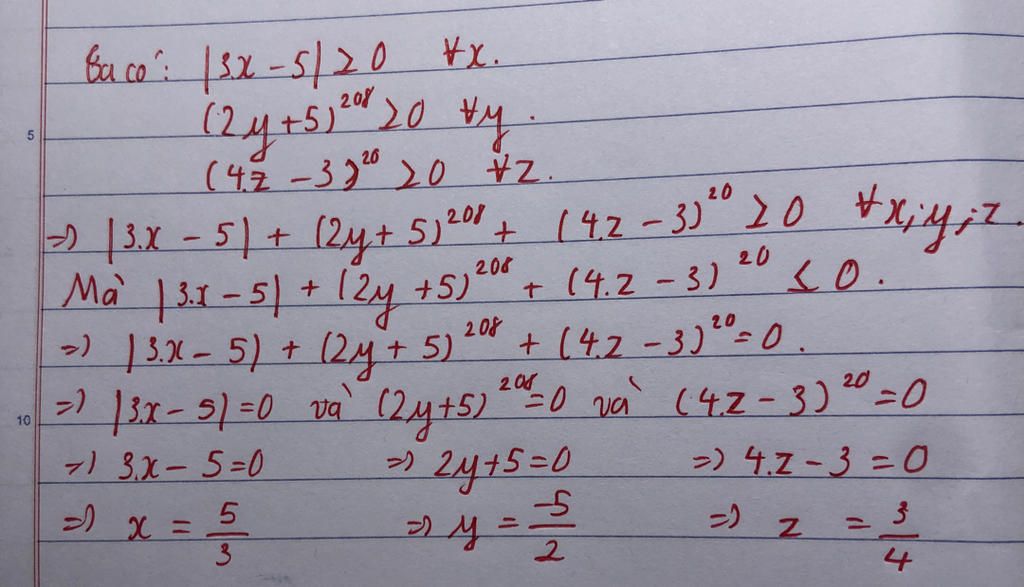 Ta có: |3x - 5| ≥ 0 ∀x.
5 (2y + 5)²⁰⁸ ≥ 0 ∀y.
(4.z - 3)²⁰ ≥ 0 ∀z.
=> |3.x - 5| + (2y + 5)²⁰⁸ + (4.z - 3)²⁰ ≥ 0 ∀x;y;z.
Mà |3.x - 5| + (2y + 5)²⁰⁸ + (4.z - 3)²⁰ ≤ 0.
=> |3.x - 5| + (2y + 5)²⁰⁸ + (4.z - 3)²⁰ = 0.
10 => |3.x - 5| = 0 và (2y + 5)²⁰⁸ = 0 và (4.z - 3)²⁰ = 0
=> 3.x - 5 = 0 => 2y + 5 = 0 => 4.z - 3 = 0
=> x = 5/3 => y = -5/2 => z = 3/4